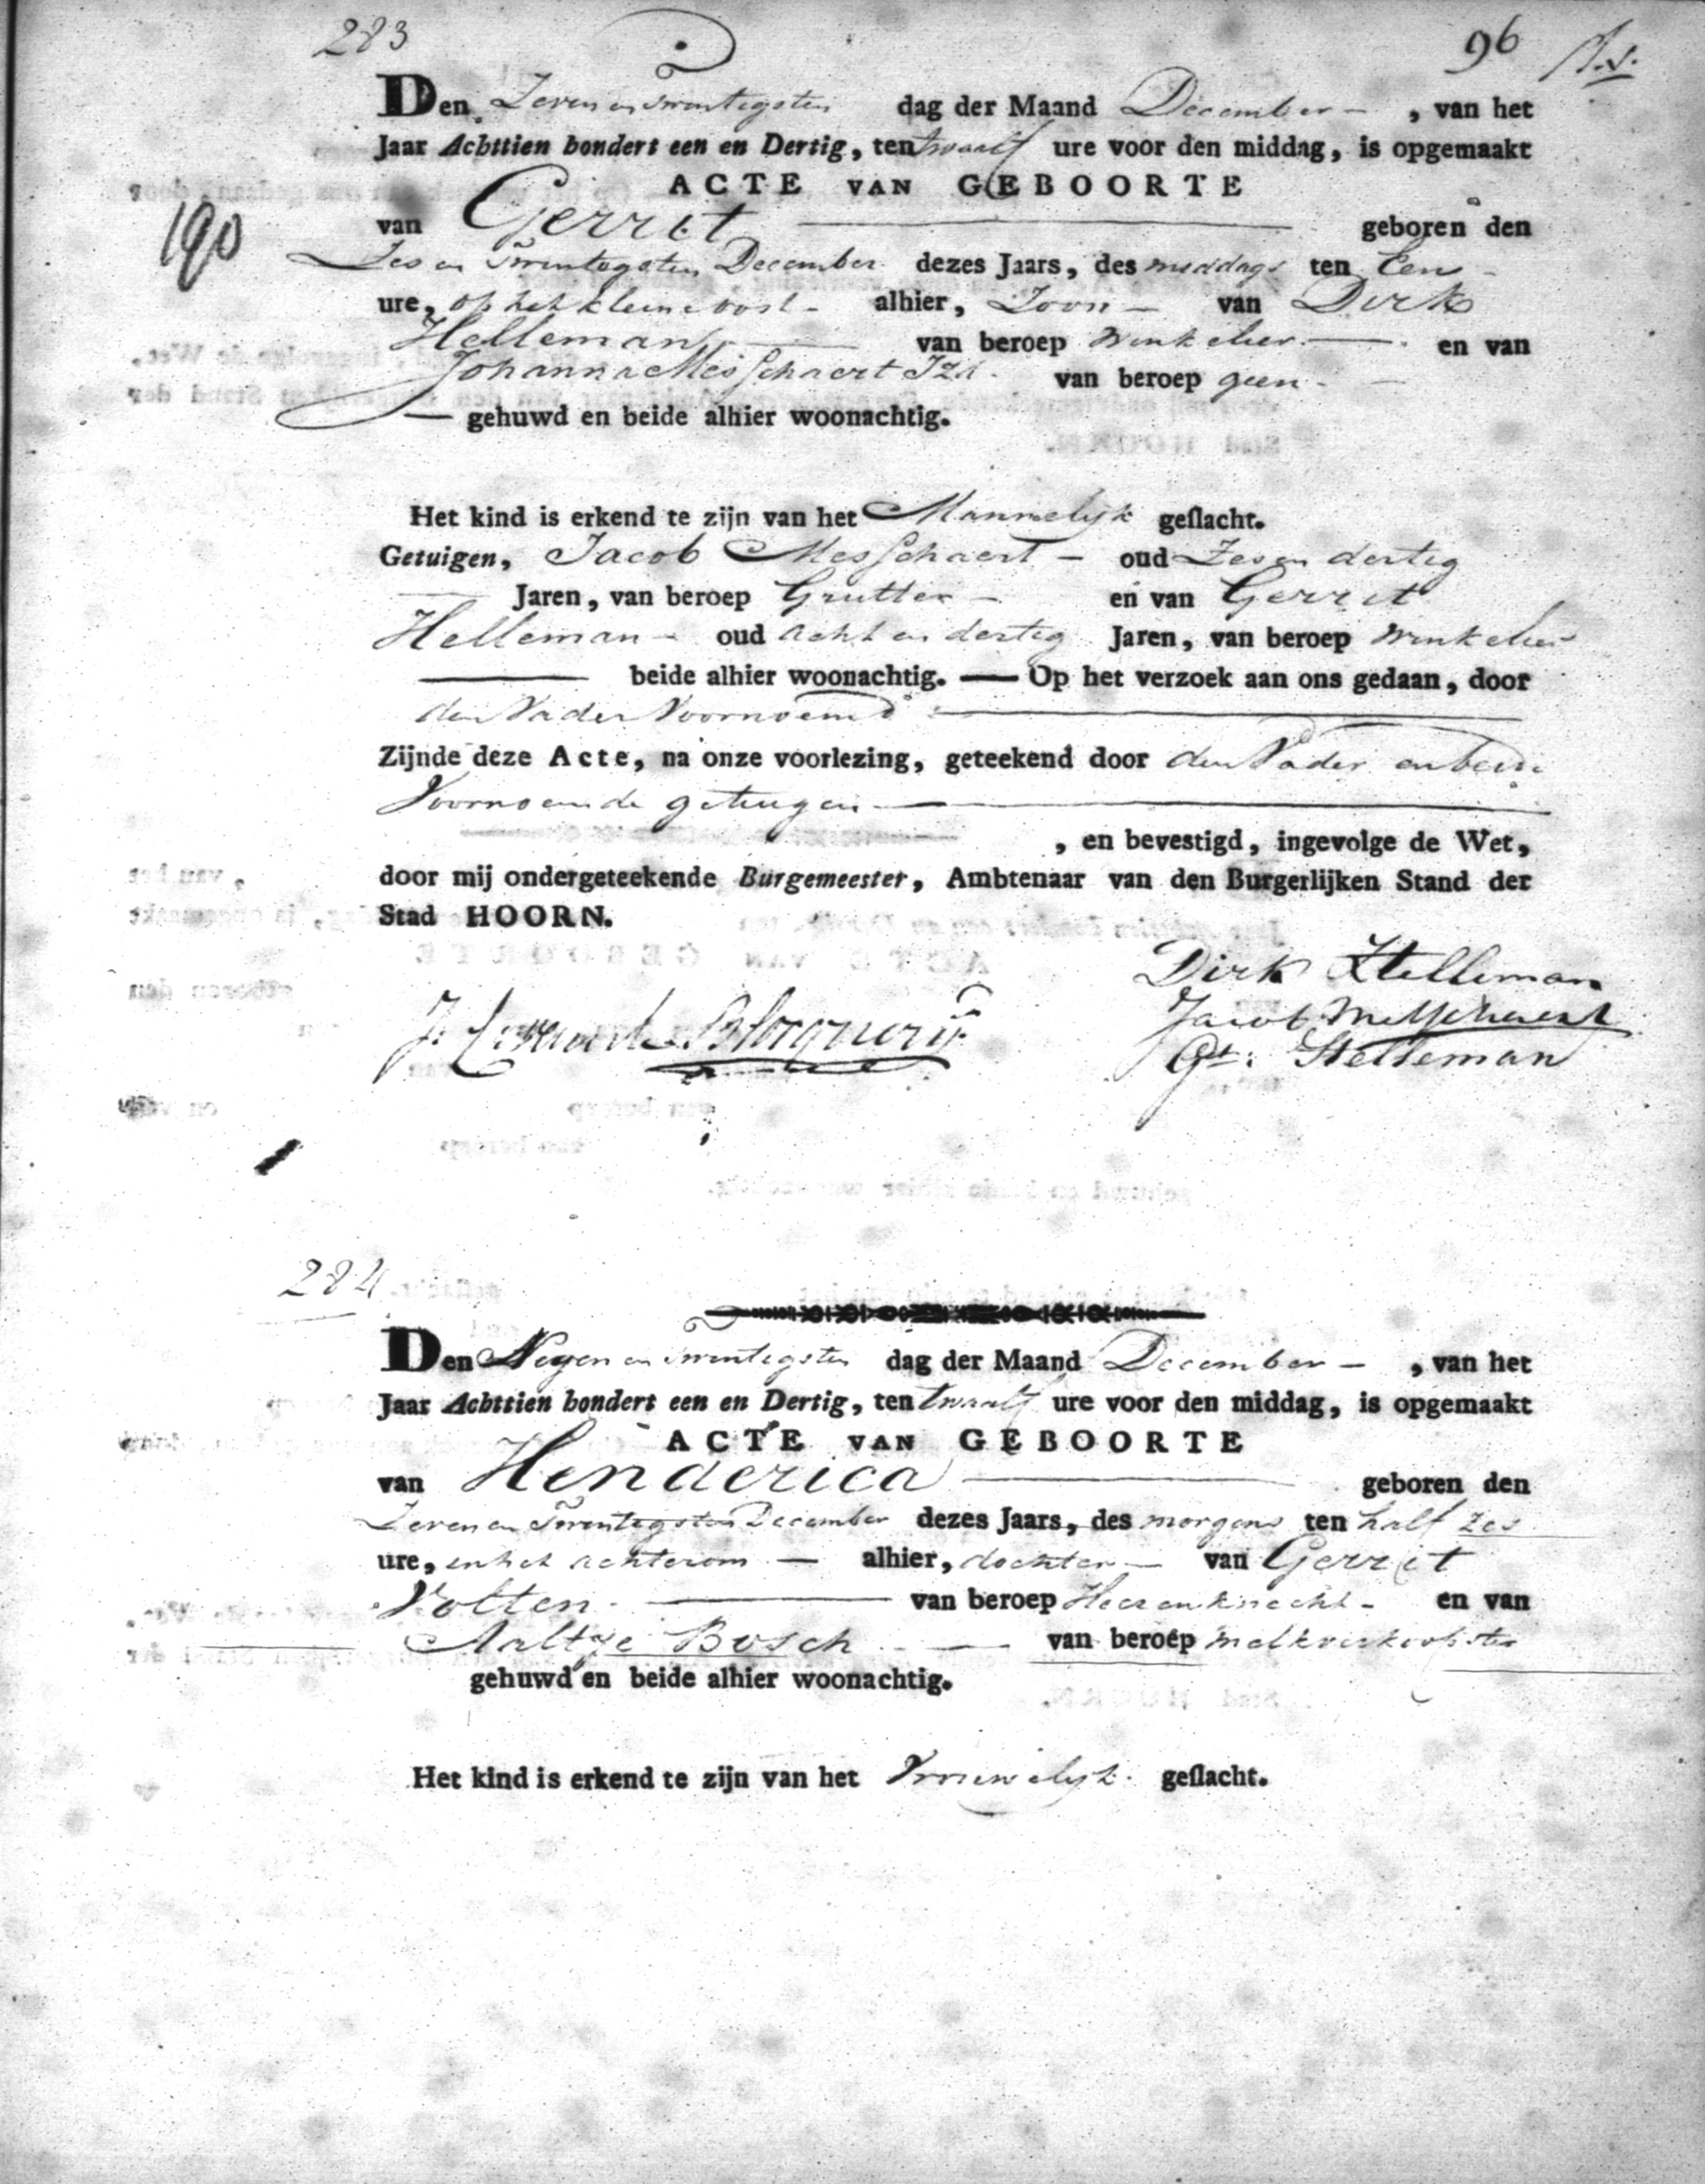 283
96
Den Zeven en Twentigsten dag der Maand December, van het
Jaar Achttien hondert een en Dertig, ten twaalf ure voor den middag, is opgemaakt
ACTE VAN GEBOORTE
190
van Gerret geboren den
Zes en Twentegsten December dezes Jaars, des middags ten Een
ure, op het kleine oost alhier, Zoon van Dirk
Helleman van beroep Winkelier en van
Johanna Messchaert Izd. van beroep geen
gehuwd en beide alhier woonachtig.
Het kind is erkend te zijn van het Mannelyk geslacht.
Getuigen, Jacob Messchaert oud Zes en dertig
Jaren, van beroep Grutter en van Gerret
Helleman oud acht en dertig Jaren, van beroep Winkelier
beide alhier woonachtig. — Op het verzoek aan ons gedaan, door
den Vader Voornoemd
Zijnde deze Acte, na onze voorlezing, geteekend door den Vader en beide
Voornoemde getuigen
, en bevestigd, ingevolge de Wet,
door mij ondergeteekende Burgemeester, Ambtenaar van den Burgerlijken Stand der
Stad HOORN.
Dirk Helleman
Jacob Messchaert
Gt: Helleman
284
Den Negen en Twentigsten dag der Maand December, van het
Jaar Achttien hondert een en Dertig, ten twaalf ure voor den middag, is opgemaakt
ACTE VAN GEBOORTE
van Henderica geboren den
Zeven en Twentegsten December dezes Jaars, des morgens ten half zes
ure, in het achterom alhier, dochter van Gerret
Volten van beroep Heerenknecht en van
Aaltje Bosch van beroep melkverkoopster
gehuwd en beide alhier woonachtig.
Het kind is erkend te zijn van het Vrouwelyk geslacht.